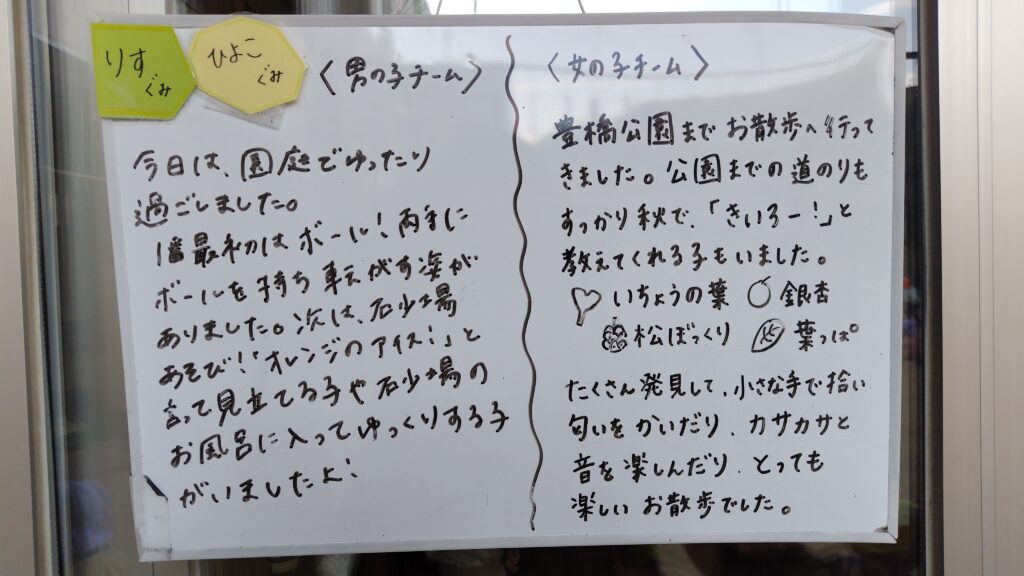 りす
ぐみ
ひよこ
ぐみ
〈男の子チーム〉
今日は、園庭でゆったり
過ごしました。
1番最初はボール！両手に
ボールを持ち転がす姿が
ありました。次は、砂場
あそび！「オレンジのアイス！」と
言って見立てる子や砂場の
お風呂に入ってゆっくりする子
がいましたよ！
〈女の子チーム〉
豊橋公園までお散歩へ行って
きました。公園までの道のりも
すっかり秋で、「きいろー！」と
教えてくれる子もいました。
いちょうの葉 銀杏
松ぼっくり 葉っぱ。
たくさん発見して、小さな手で拾い
匂いをかいだり、カサカサと
音を楽しんだり、とっても
楽しいお散歩でした。